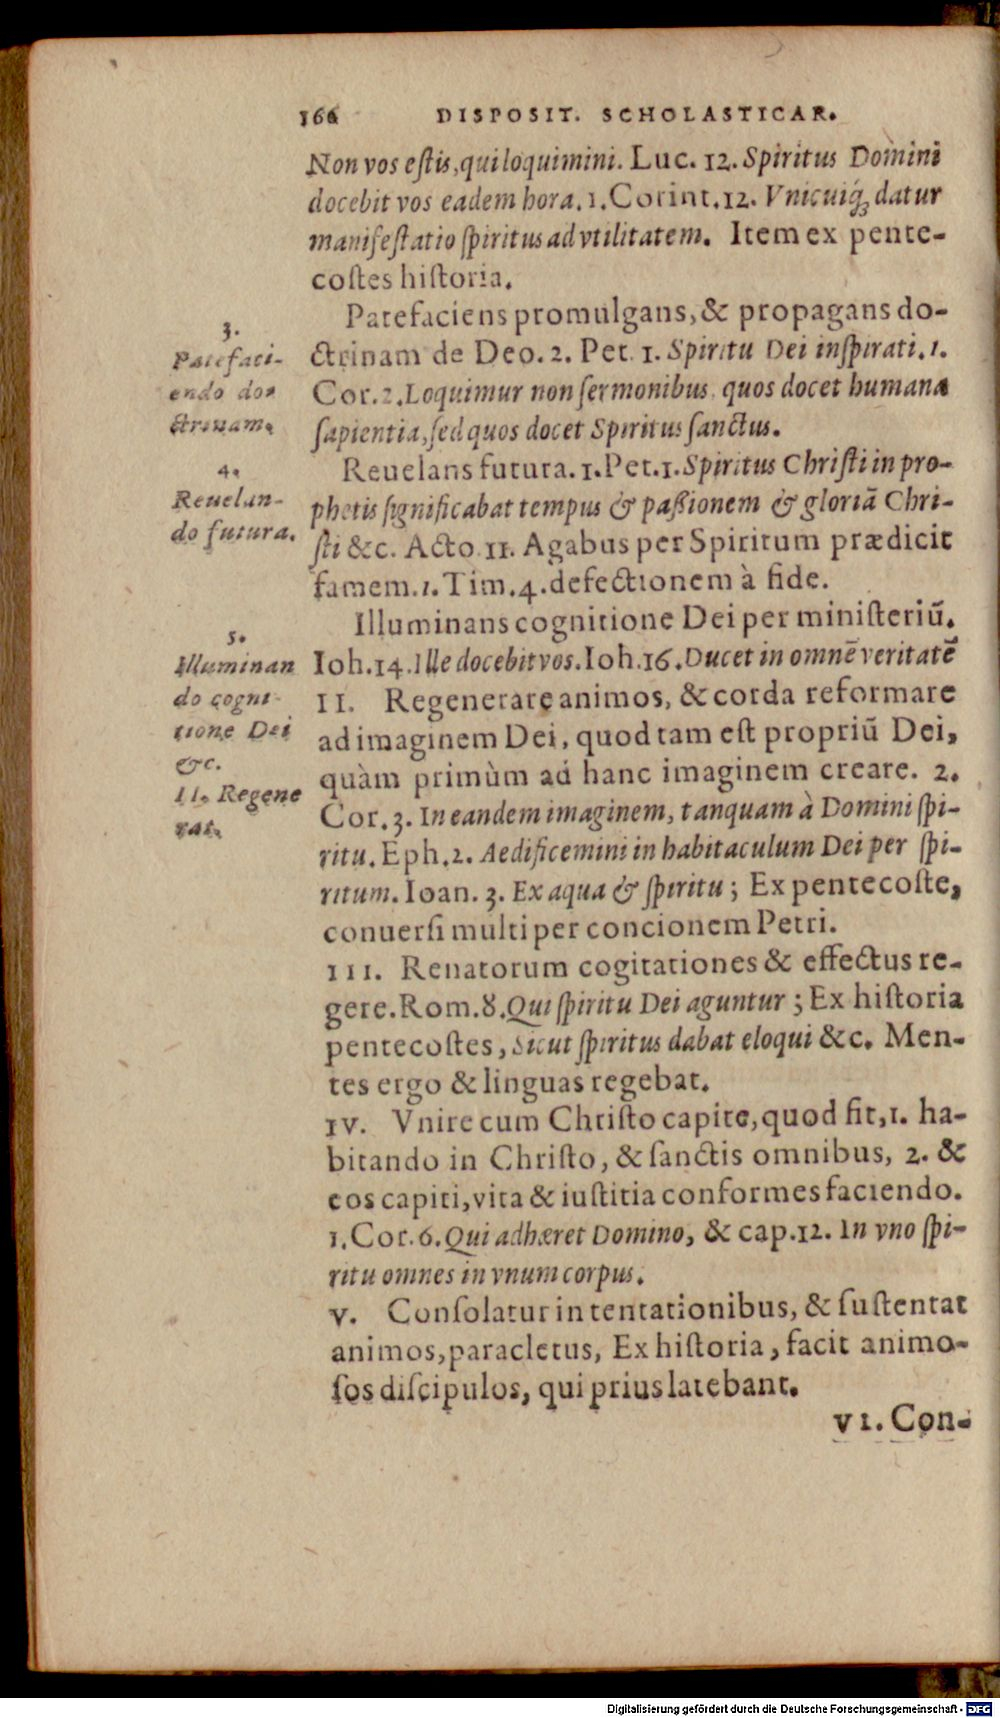 166 DISPOSIT. SCHOLASTICAR.
Non vos eſtis, qui loquimini. Luc. 12. Spiritus Domini
docebit vos eadem hora. 1. Corint. 12. Vnicuiq́ꝫ datur
manifeſtatio ſpiritus ad vtilitatem. Item ex pente-
coſtes hiſtoria.
Patefaciens promulgans, & propagans do-
ctrinam de Deo. 2. Pet. 1. Spiritu Dei inſpirati. 1.
Cor. 2. Loquimur non ſermonibus, quos docet humana
ſapientia, ſed quos docet Spiritus ſanctus.
3.
Patefaci-
endo do-
ctrinam.
Reuelans futura. 1. Pet. 1. Spiritus Chriſti in pro-
phetis ſignificabat tempus & paſſionem & gloriã Chri-
ſti &c. Acto. 11. Agabus per Spiritum prædicit
famem. 1. Tim. 4. defectionem à fide.
4.
Reuelan-
do futura.
Illuminans cognitione Dei per miniſteriũ.
Ioh. 14. Ille docebit vos. Ioh. 16. Ducet in omnẽ veritatẽ
5.
Illuminan
do cogni-
tione Dei
&c.
II. Regenerare animos, & corda reformare
ad imaginem Dei, quod tam eſt propriũ Dei,
quàm primùm ad hanc imaginem creare. 2.
Cor. 3. In eandem imaginem, tanquam à Domini ſpi-
ritu. Eph. 2. Aedificemini in habitaculum Dei per ſpi-
ritum. Ioan. 3. Ex aqua & ſpiritu; Ex pentecoſte,
conuerſi multi per concionem Petri.
II. Regene
rat.
III. Renatorum cogitationes & effectus re-
gere. Rom. 8. Qui ſpiritu Dei aguntur; Ex hiſtoria
pentecoſtes, Sicut ſpiritus dabat eloqui &c. Men-
tes ergo & linguas regebat.
IV. Vnire cum Chriſto capite, quod fit, 1. ha-
bitando in Chriſto, & ſanctis omnibus, 2. &
eos capiti, vita & iuſtitia conformes faciendo.
1. Cor. 6. Qui adhæret Domino, & cap. 12. In vno ſpi-
ritu omnes in vnum corpus.
V. Conſolatur in tentationibus, & ſuſtentat
animos, paracletus, Ex hiſtoria, facit animo-
ſos diſcipulos, qui prius latebant.
VI. Con-
Digitalisierung gefördert durch die Deutsche Forschungsgemeinschaft - DFG